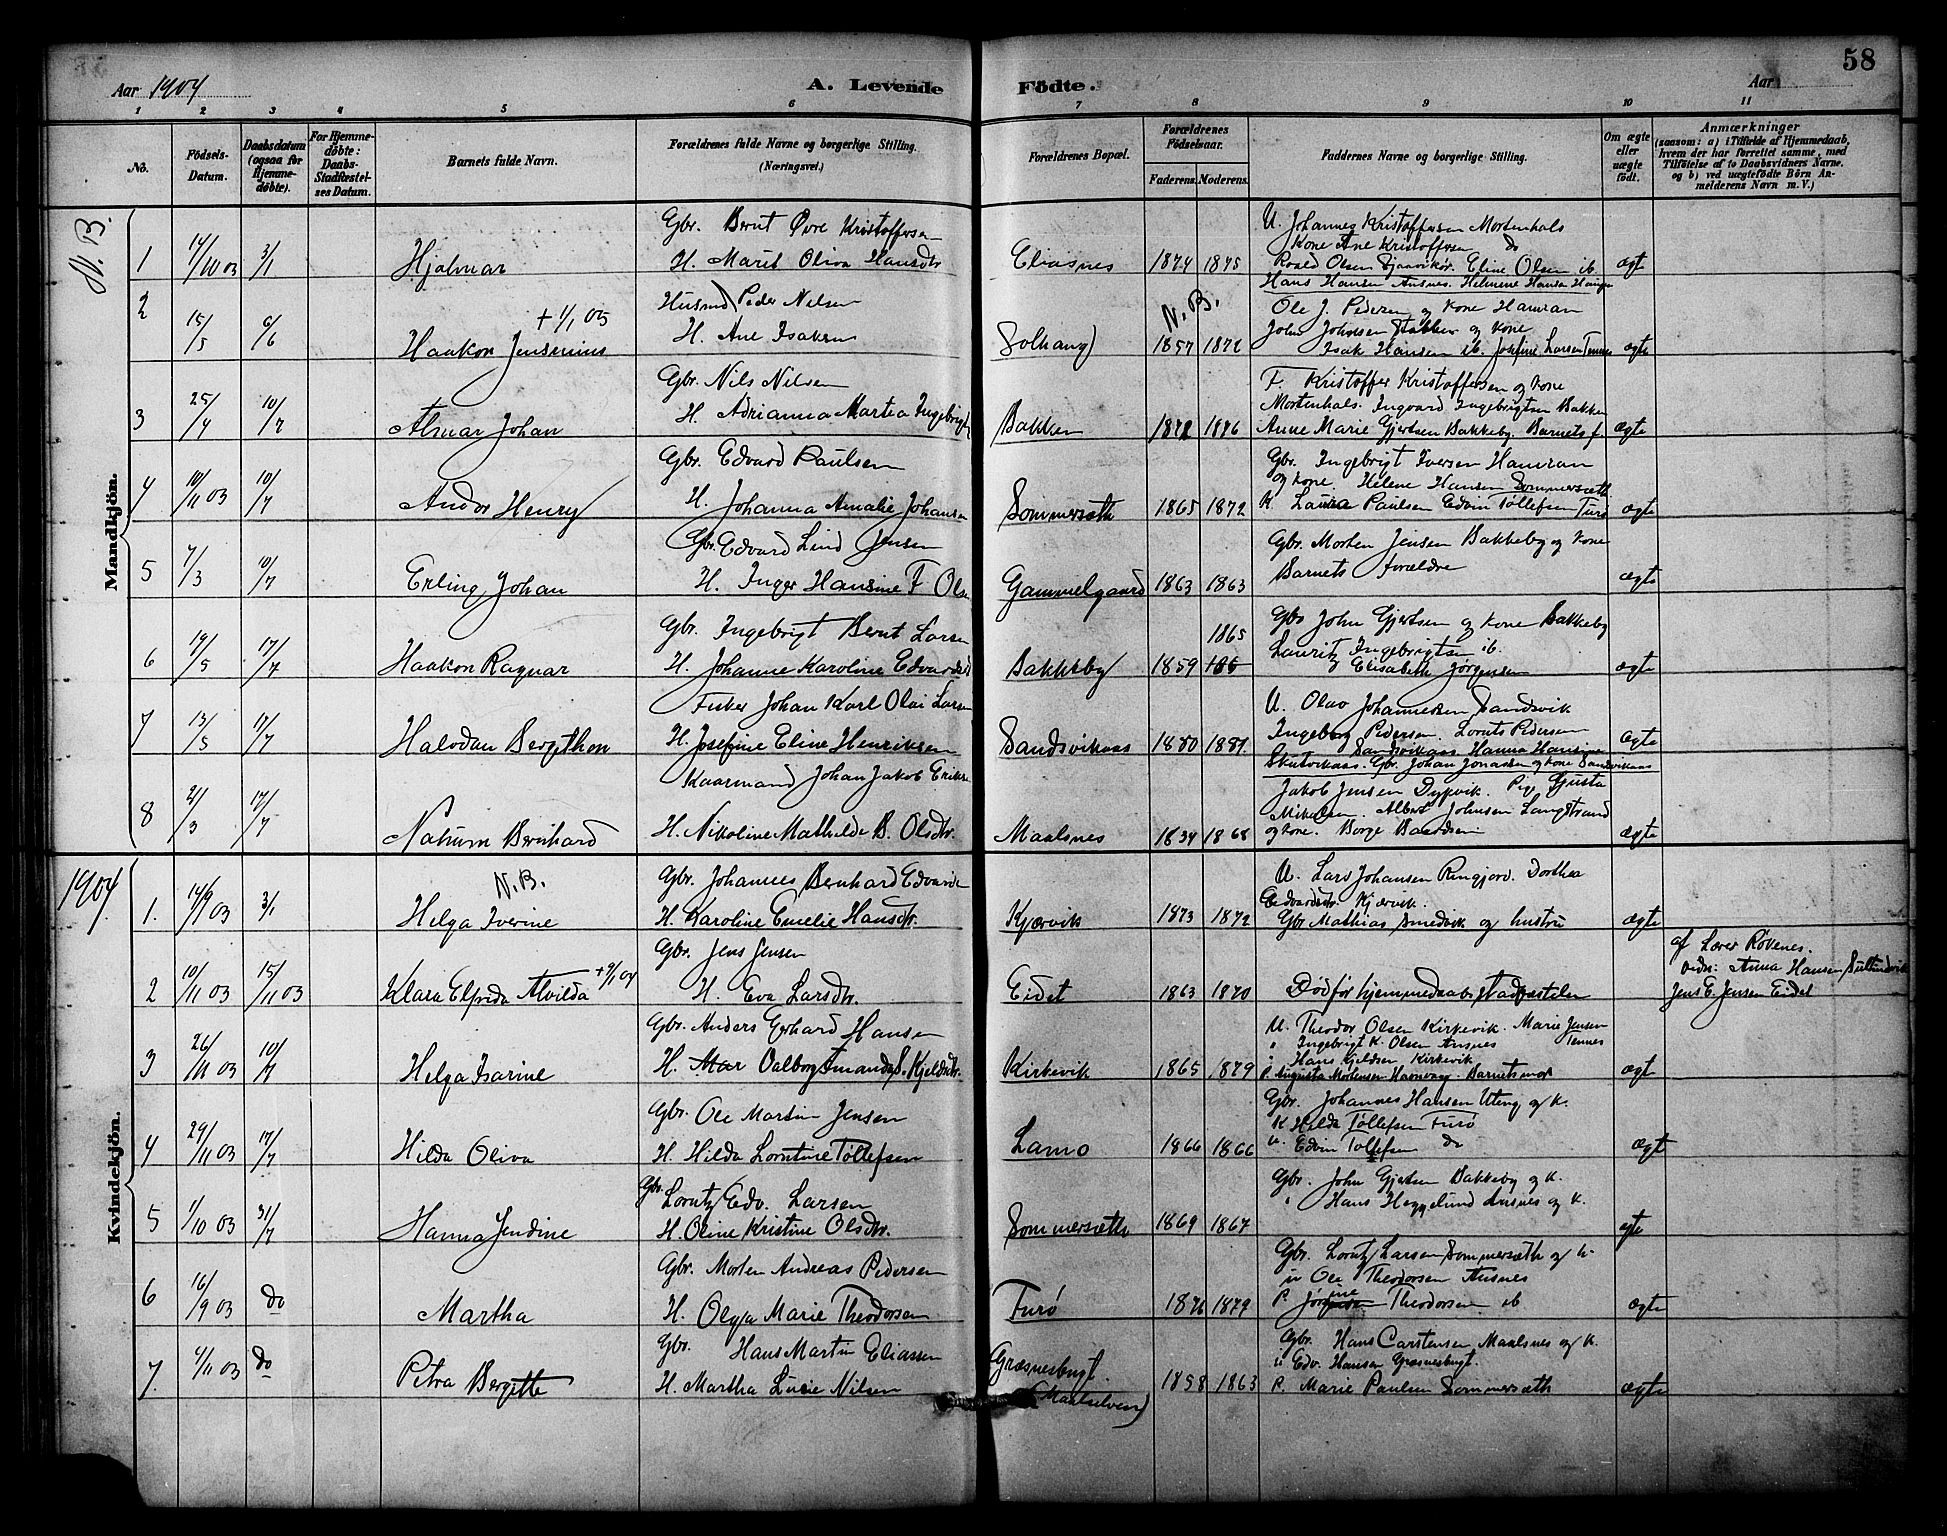 58
Aar 1904
A. Levende
Födte.
Aar
1 2 3 4 5 6 7 8 9 10 11
No.
Födsels-Datum.
Daabsdatum (ogsaa for Hjemmedöbte).
For Hjemmedöbte: Daabs-Stadfæstelses Datum.
Barnets fulde Navn.
Forældrenes fulde Navne og borgerlige Stilling. (Næringsvei.)
Forældrenes Bopæl.
Forældrenes Födselsaar.
Faderens. Moderens.
Faddernes Navne og borgerlige Stilling.
Om ægte eller uægte födt.
Anmærkninger
(saasom: a) i Tilfælde af Hjemmedaab, hvem der har forrettet samme, med Tilföielse af to Daabsvidners Navne, og b) ved uægtefödte Börn Anmelderens Navn m. V.)
N. B.
Mandkjön.
1 14/10 03 3/1 Hjalmar
Gbr. Bernt Øvre Kristoffersen
H. Marit Oliva Hansdtr
Eliasnes 1874 1875
U. Johannes Kristoffersen Mortenhals
Kone Ane Kristoffersen do
Roald Olsen Eline Olsen ib.
Hans Hansen Ansnes. Helmine Hansen
ægt
2 15/5 6/6 Haakon Jensenius + 1/1 05
Husmd Peder Nilsen
H. Ane Isaksen
Solhaug N.B. 1857 1872
Ole J. Pedersen og Kone Hamran
John Johnsen Stakken og Kone
Isak Hansen ib. Josefine Larsen Tennes
ægte
3 25/4 10/7 Almar Johan
Gbr. Nils Nilsen
H. Adrianna Martea Ingebrigts
Bakken 1872 1876
F. Kristoffer Kristoffersen og Kone
Mortenhals. Ingvard Ingebrigtsen Bakken
Anne Marie Gjertsen Bakkeby. Barnets f.
ægte
4 10/11 03 10/7 Andor Henry
Gbr. Edvard Paulsen
H. Johanna Amalie Johansen
Sommersæth 1865 1872
Gbr. Ingebrigt Iversen Hamran
og Kone. Helene Hansen Sommersæth
K. Laura Paulsen Edvin Tøllefsen Furø
ægte
5 7/3 10/7 Erling Johan
Gbr. Edvard Lind Jensen
H. Inger Hansine F. Olsen
Gammelgaard 1863 1863
Gbr. Morten Jensen Bakkeby og Kone
Barnets Forældre
ægte
6 19/5 17/7 Haakon Ragnar
Gbr. Ingebrigt Bernt Larsen
H. Johanne Karoline Edvardsd
Bakkeby 1859 1865
Gbr John Gjertsen og Kone Bakkeby
Lauritz Ingebrigtsen ib.
Elisabeth Jørgensen
ægte
7 13/5 17/7 Halvdan Bergithon
Fisker Johan Karl Olai Larsen
H. Josefine Eline Henriksen
Sandsvikaas 1880 1881
U. Olav Johannessen Sandsvik
Ingeborg Pedersen. Lorents Pedersen
Sandsvikaas Hanna Hansine
Skutvikaas. Gbr. Johan Jonassen og Kone Sandsvikaas
ægte
8 21/3 17/7 Nahum Bernhard
Kaarmand Johan Jakob Eriksen
H. Nikoline Mathilde B. Olsdtr.
Maalsnes 1834 1868
Jakob Jensen Dypvik. Pige Gjusta
Mikalsen. Albert Johnsen Langstrand
og Kone. Borge Baardsen
ægte
1904
Kvindekjön.
1. 14/9 03 3/1 N.B. Helga Iverine
Gbr. Johannes Bernhard Edvards
H. Karoline Emelie Hansdtr.
Kjærvik 1873 1872
U. Lars Johansen Ringjord. Dorthea
Edvardsdtr. Kjærvik.
Gbr Mathias Smedvik og hustru
ægte
2 10/11 03 15/11 03 Klara Elfrida Alvilda + 9/1 04
Gbr. Jens Jensen
H. Eva Larsdtr.
Eidet 1863 1870
Død før hjemmedaabs stadfæstelse
af Lærer Røvenes.
Vidn: Anna Hansen
Jens E. Jensen Eidet
3 26/11 03 10/7 Helga Isarine
Gbr. Anders Gerhard Hansen
H. Valborg Amanda S. Kjeldsdtr.
Kirkevik 1865 1879
U. Theodor Olsen Kirkevik. Marie Jensen Tennes
" Ingebrigt K. Olsen Ansnes
" Hans Kjeldsen Kirkevik
P. Augusta Mortensen Havnvaag. Barnets mor
ægt
4 29/11 03 17/7 Hilda Oliva
Gbr. Ole Martin Jensen
H. Hilda Lorntine Tøllefsen
Lamo 1866 1866
Gbr. Johannes Hansen Uteng og K.
K Hilda Tøllefsen Furø
U. Edvin Tøllefsen do
ægt
5 1/10 03 31/7 Hanna Jendine
Gbr. Lorntz Edv. Larsen
H. Oline Kristine Olsdtr.
Sommersæth 1869 1867
Gbr. John Gjertsen Bakkeby og K.
" Hans Heggelund Ansnes og K.
ægte
6 16/9 03 do Martha
Gbr. Morten Andreas Pedersen
H. Olga Marie Theodorsen
Furø 1876 1879
Gbr. Lorntz Larsen Sommersæth og K.
U Ole Theodorsen Ansnes
P. Theodorsen ib
ægte
7. 4/11 03 do Petra Bergitte
Gbr. Hans Martin Eliassen
H. Martha Lucie Nilsen
Græsnesbugt. (Maalselven) 1858 1863
Gbr. Hans Carstensen Maalsnes og K.
U Edv. Hansen Græsnesbugt.
P. Marie Paulsen Sommersæth
ægte